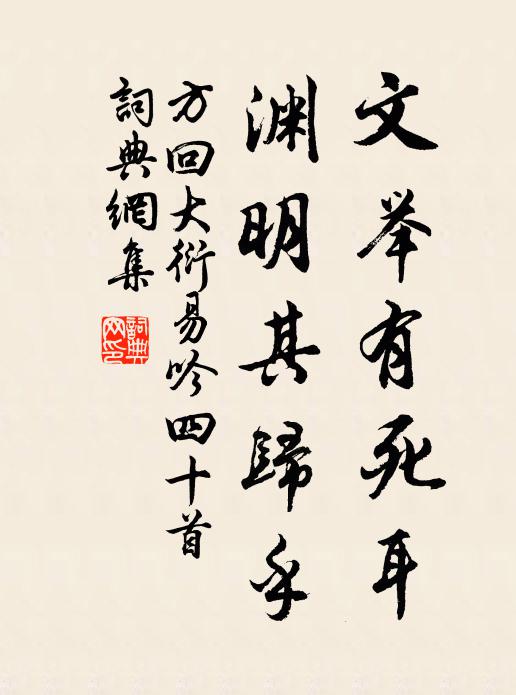 文举有死耳
渊明其歸乎
方回大衍易吟四十首
詞典網集
詞典网印